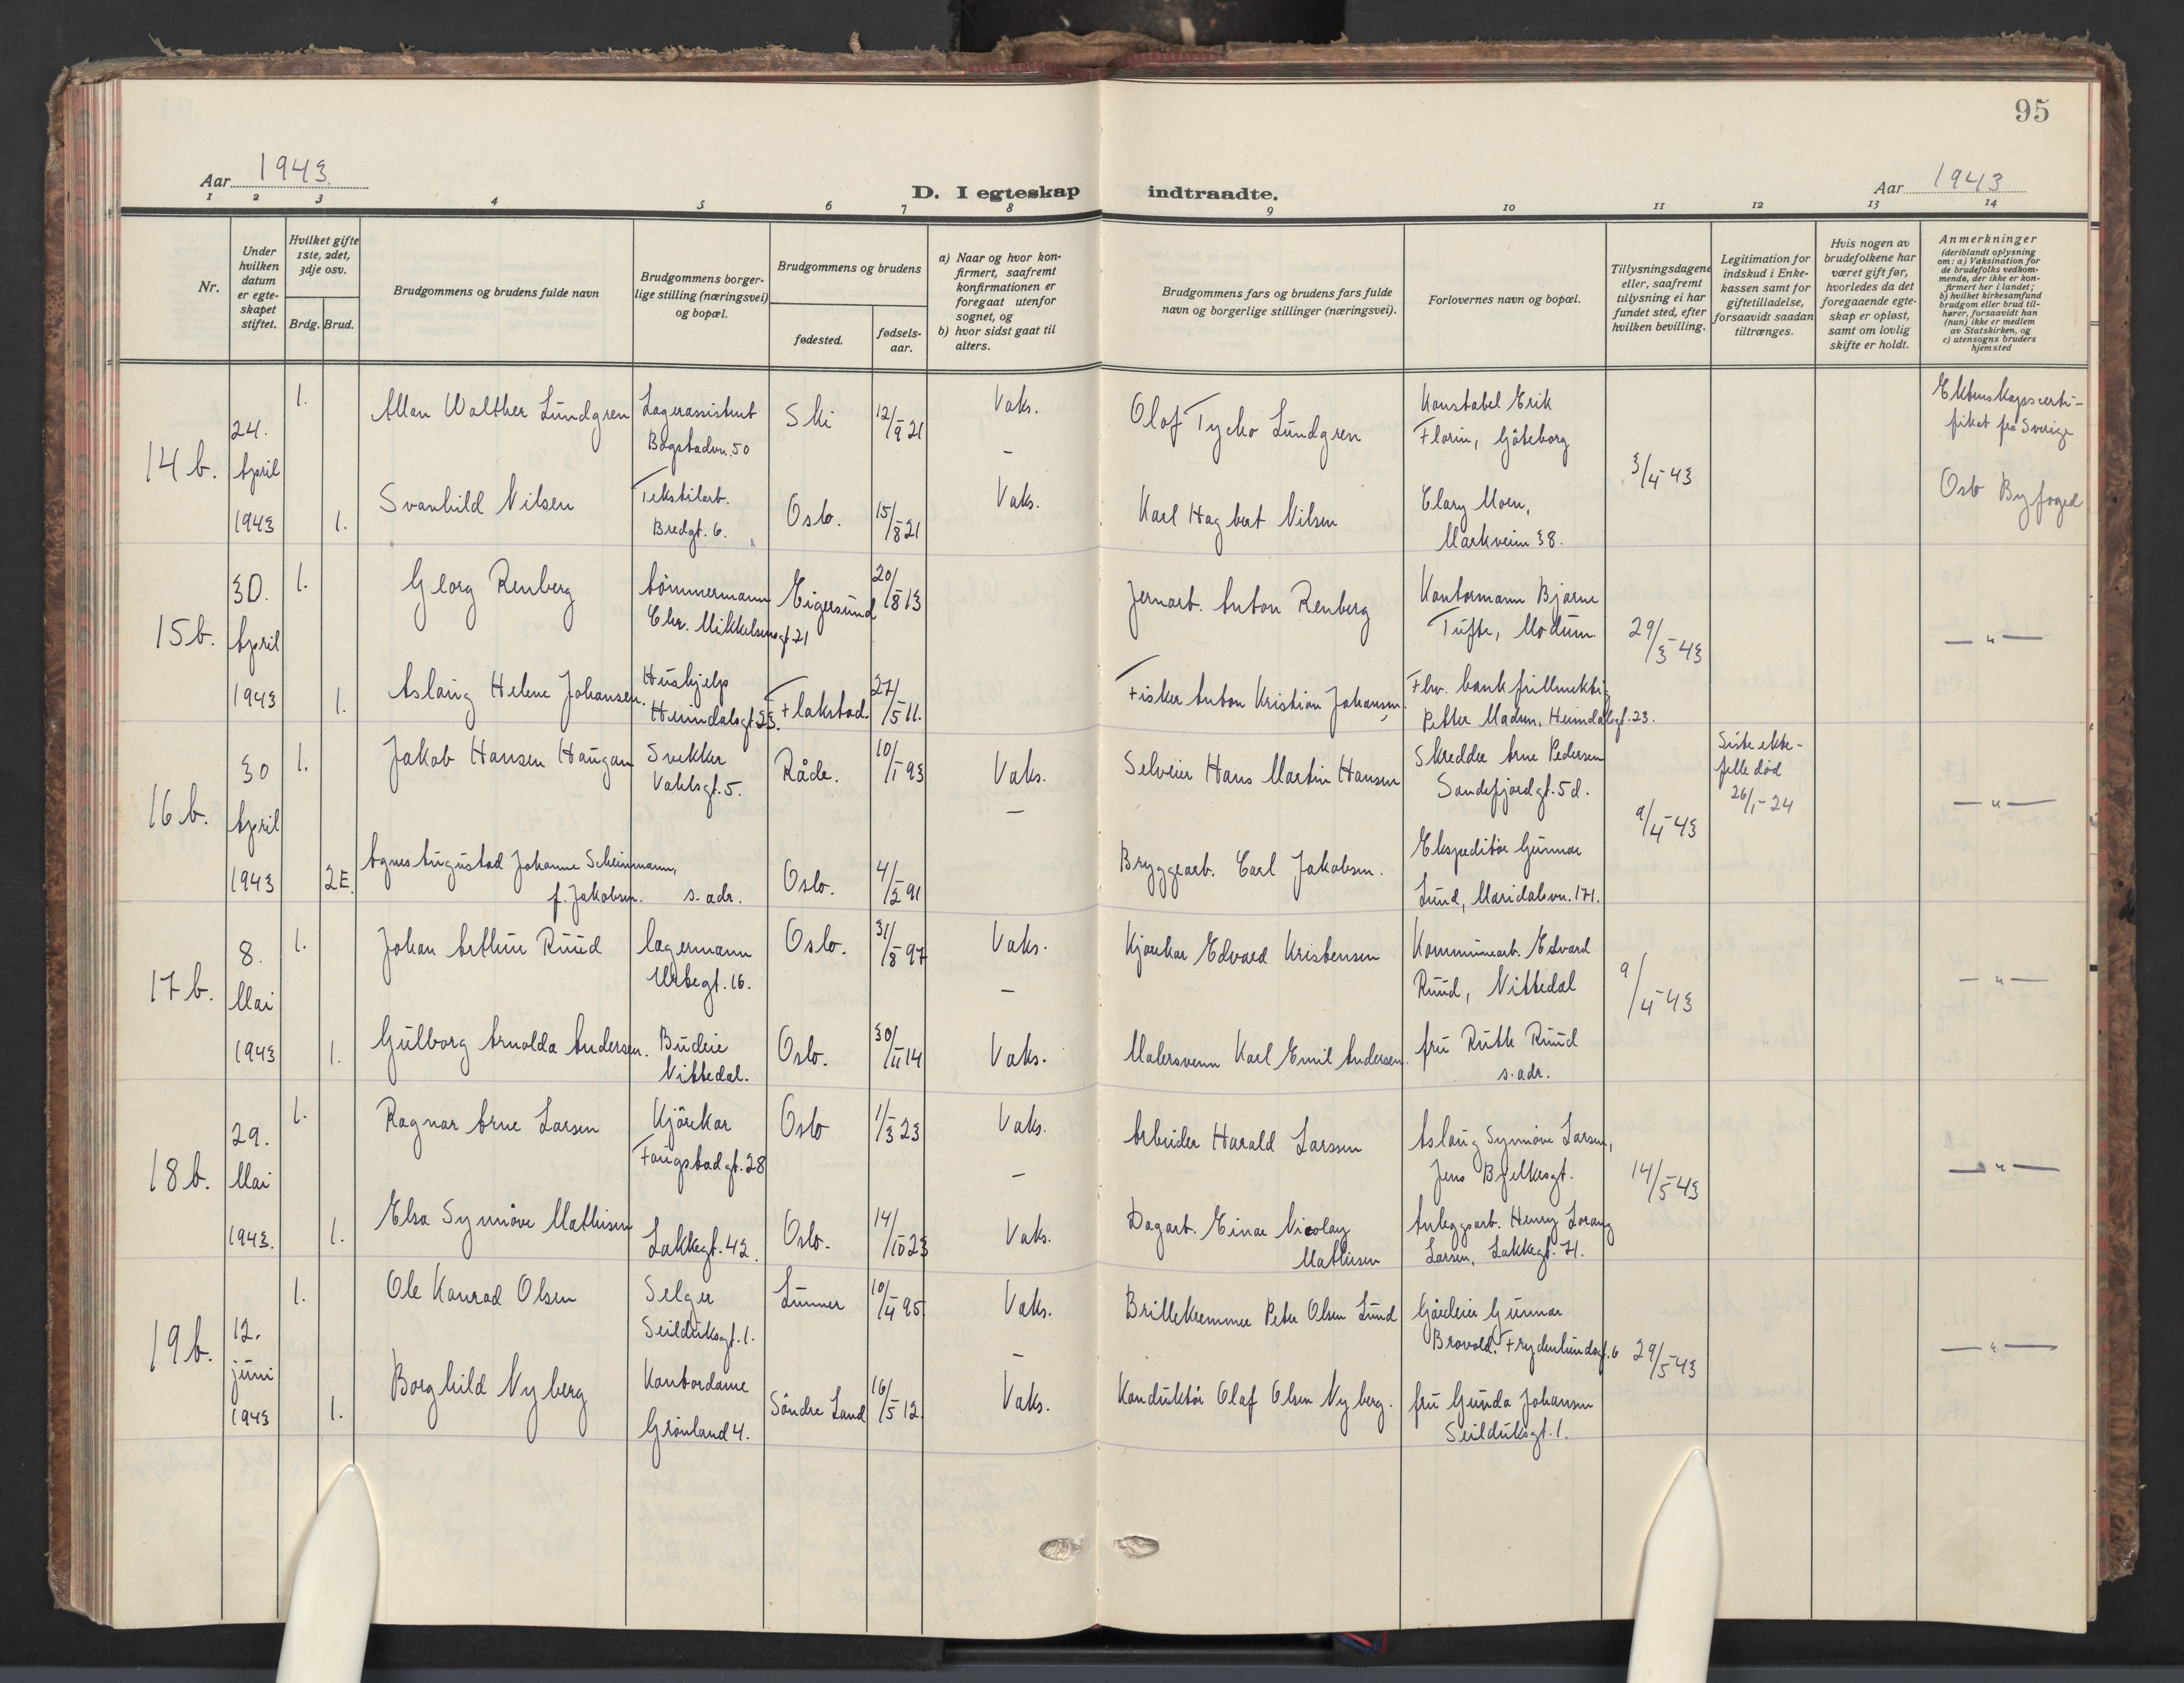 95
Aar 1943
D. I egteskap indtraadte.
Aar 1943
1 2 3 4 5 6 7 8 9 10 11 12 13 14
Nr.
Under hvilken datum er egteskapet stiftet.
Hvilket gifte 1ste, 2det, 3dje osv.
Brdg. Brud.
Brudgommens og brudens fulde navn
Brudgommens borgerlige stilling (næringsvei) og bopæl.
Brudgommens og brudens
fødested.
fødselsaar.
a) Naar og hvor konfirmert, saafremt konfirmationen er foregaat utenfor sognet, og
b) hvor sidst gaat til alters.
Brudgommens fars og brudens fars fulde navn og borgerlige stillinger (næringsvei).
Forlovernes navn og bopæl.
Tillysningsdagene eller, saafremt tillysning ei har fundet sted, efter hvilken bevilling.
Legitimation for indskud i Enkekassen samt for giftetilladelse, forsaavidt saadan tiltrænges.
Hvis nogen av brudefolkene har været gift før, hvorledes da det foregaaende egteskap er opløst, samt om lovlig skifte er holdt.
Anmerkninger
(deriblandt oplysning om: a) Vaksination for de brudefolks vedkommende, der ikke er konfirmert her i landet;
b) hvilket kirkesamfund brudgom eller brud tilhører, forsaavidt han (hun) ikke er medlem av Statskirken, og
c) utensogns bruders hjemsted
14 b.
24. April 1943
1. Allan Walther Lundgren
Lagerassistent
Bogstadvn. 50
Ski 12/9-21
Vaks.
Olof Tycho Lundgren
Konstabel Erik
Florin, Göteborg
3/4-43
Ektenskapscerti-
fikat fra Sverige
Oslo Byfoged
1. Svanhild Nilsen
Tekstilarb.
Bredgt. 6.
Oslo. 15/8 21
Vaks.
Karl Hagbert Nilsen
Clary Moen,
Markveien 38.
15 b.
30. April 1943
1. Georg Renberg
tømmermann
Chr. Mikkelsensgt. 21
Eigersund 20/8 13
Jernarb. Anton Renberg
Kontormann Bjarne
Tufte, Modum.
29/3-43
— " —
1. Aslaug Helene Johansen.
Hushjelp
Heimdalsgt. 23.
Flakstad. 27/5 11.
Fisker Anton Kristian Johansen.
Fhv. bankfullmektig
Petter Madsen, Heimdalsgt. 23.
16 b.
30 April 1943
1. Jakob Hansen Haugan
Snekker
Vahlsgt. 5.
Råde. 10/1 93
Vaks.
—
Selveier Hans Martin Hansen
Skredder Arne Pedersen
Sandefjordgt. 5d.
9/4-43
Siste ekte-
felle død
26/1-24
— " —
2E. Agnes Augustad Johanne Scheinmann,
f. Jakobsen.
s. adr.
Oslo. 4/2 91
Bryggearb. Carl Jakobsen.
Ekspeditør Gunnar
Lund, Maridalsvn. 171.
17 b.
8. Mai 1943
1. Johan Arthur Ruud
lagermann
Urtegt. 16.
Oslo. 31/8 97
Vaks.
—
Kjørekar Edvard Kristensen
Kommunearb. Edvard
Ruud, Nittedal
9/4-43
— " —
1. Gulborg Arnolda Andersen.
Budeie
Nittedal.
Oslo. 30/11 14
Vaks.
Malersvenn Karl Emil Andersen.
fru Ruth Ruud
s. adr.
18 b.
29. Mai 1943.
1. Ragnar Arne Larsen
Kjørekar
Faugstadgt. 28
Oslo 1/3 23
Vaks.
—
Arbeider Harald Larssen
Aslaug Synnøve Larsen,
Jens Bjelkesgt.
14/5-43
— " —
1. Elsa Synnøve Mathisen
Lakkegt. 42.
Oslo. 14/10 23
Vaks.
Dagarb. Einar Nicolay
Mathisen
Anleggsarb. Henry Lorang
Larsen, Lakkegt. 71.
19 b.
12. juni 1943
1. Ole Konrad Olsen
Selger
Seilduksgt. 1.
Lunner 10/4 95.
Vaks.
—
Brillekremmer Peter Olsen Lund
Gårdeier Gunnar
Brovold. Frydenlundsgt. 6
29/5-43
— " —
1. Borghild Nyberg
Kontordame
Grønland 4.
Søndre Land 16/5 12.
Vaks.
Konduktør Olaf Olsen Nyberg.
fru Gunda Johansen
Seilduksgt. 1.